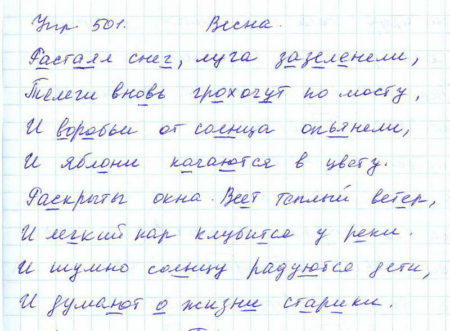 Упр. 501. Весна.
Растаял снег, луга зазеленели,
Телеги вновь грохочут по мосту,
И воробьи от солнца опьянели,
И яблони качаются в цвету.
Раскрыты окна. Веет теплый ветер,
И легкий пар клубится у реки.
И шумно солнцу радуются дети,
И думают о жизни старики.